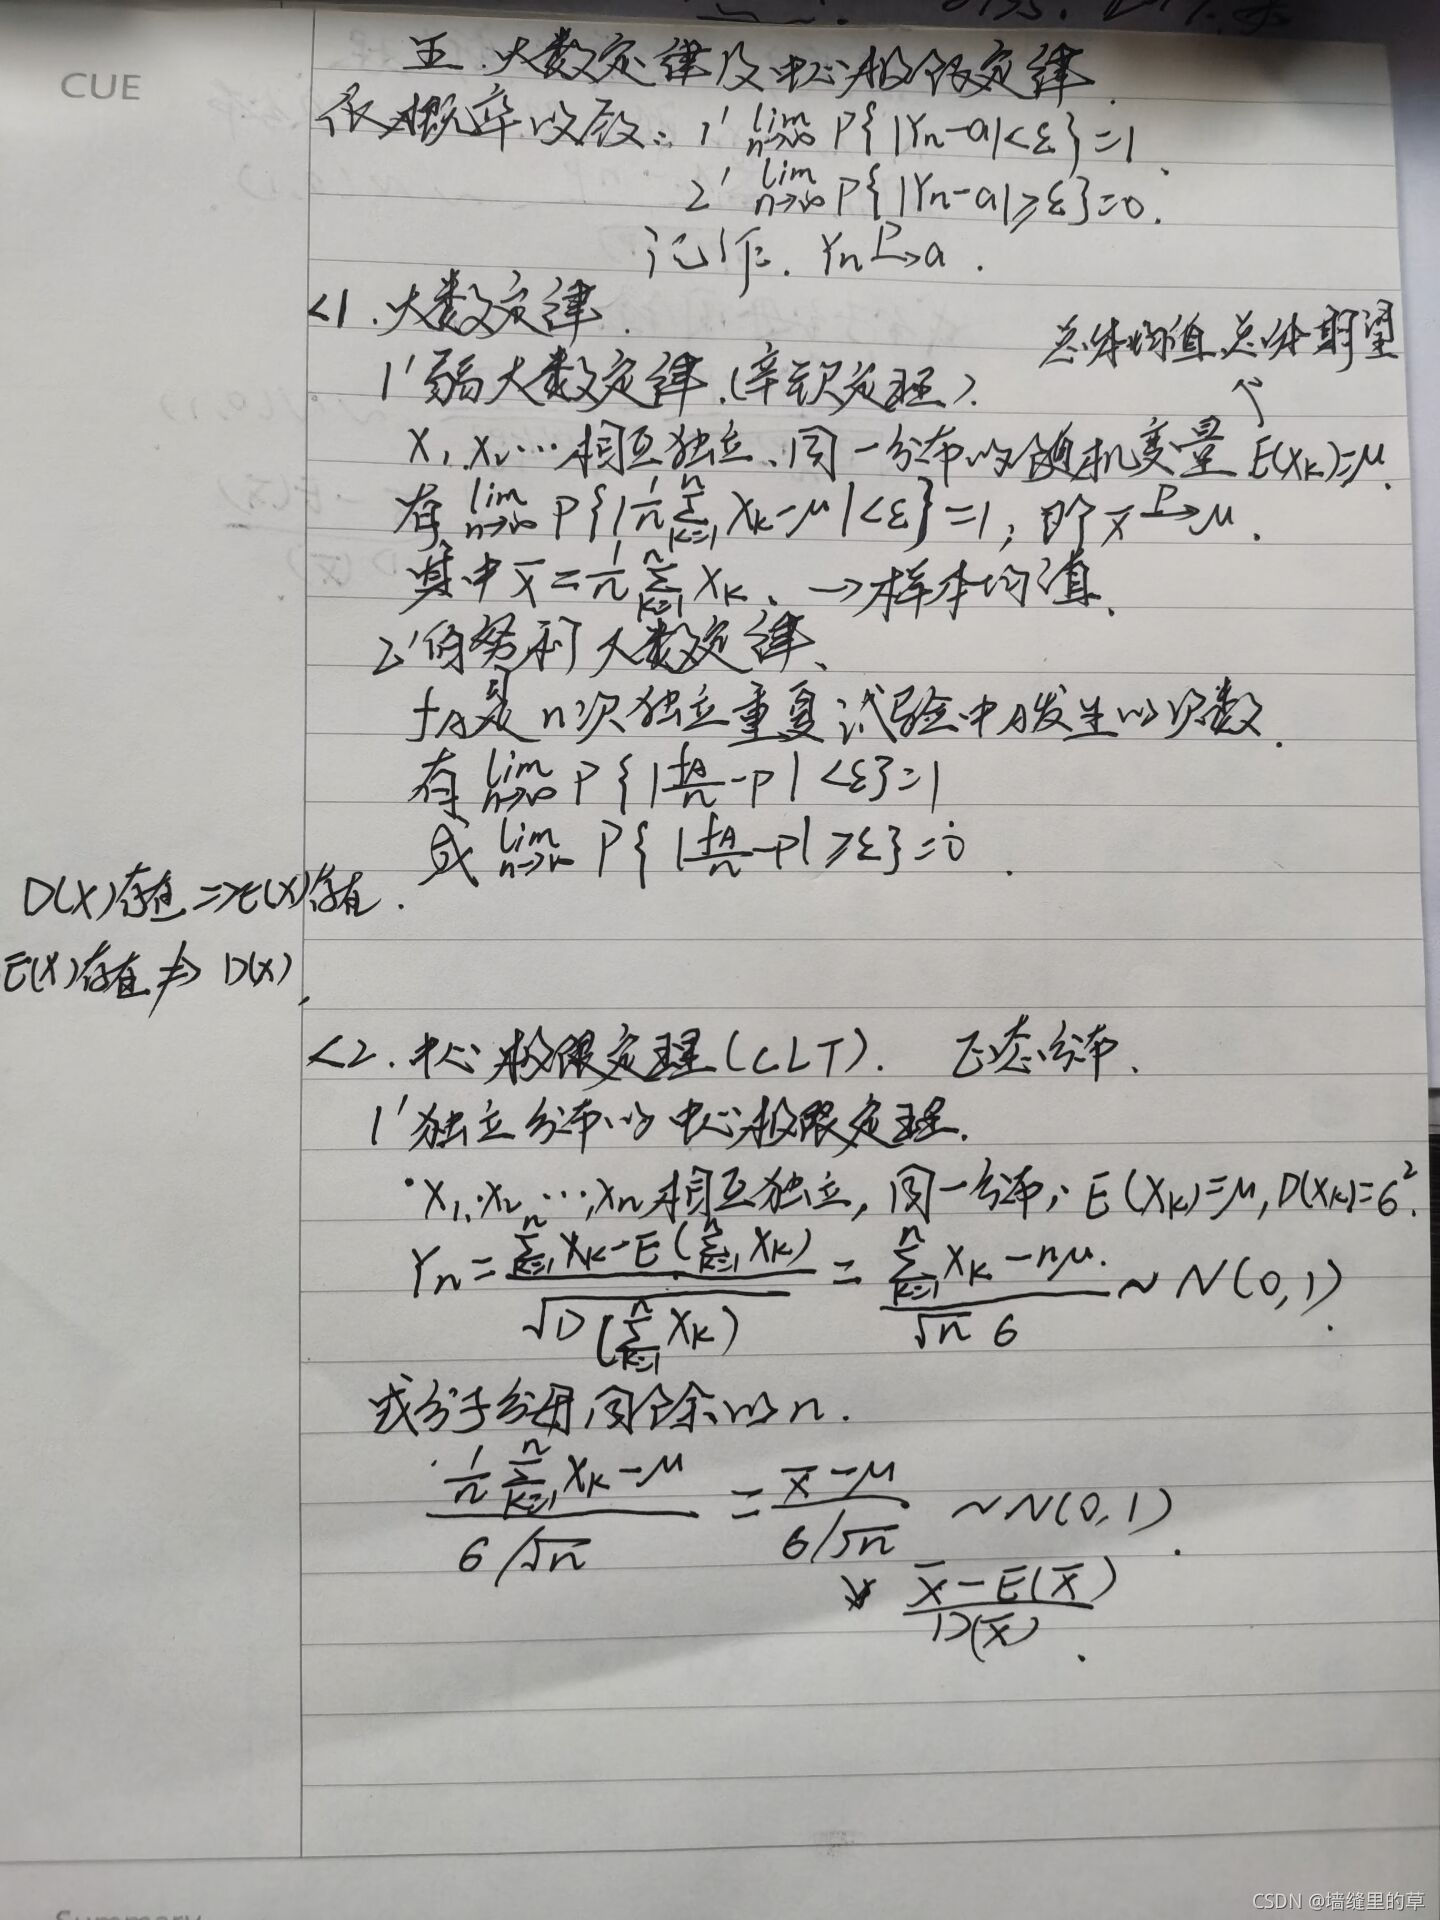 CUE
五.大数定律及中心极限定律.
依概率收敛: 1' lim n→∞ P{|Yn-a|<ε}=1.
2' lim n→∞ P{|Yn-a|≥ε}=0.
记作. Yn P→ a.
<1.大数定律.
总体均值.总体期望
1'弱大数定律.(辛钦定理).
X1,X2,…相互独立、同一分布的随机变量 E(Xk)=μ.
有 lim n→∞ P{|1/n ∑(k=1,n) Xk-μ|<ε}=1, 即 x̄ P→ μ.
其中 x̄=1/n ∑(k=1,n) Xk. →样本均值.
2'伯努利大数定律.
fA是n次独立重复试验中A发生的次数.
有 lim n→∞ P{|fA/n-p|<ε}=1
或 lim n→∞ P{|fA/n-p|≥ε}=0.
D(X)存在=>E(X)存在.
E(X)存在≠> D(X).
<2.中心极限定理(CLT). 正态分布.
1'独立分布的中心极限定理.
·X1,X2,…,Xn相互独立,同一分布, E(Xk)=μ,D(Xk)=6².
Yn = (∑(k=1,n) Xk-E(∑(k=1,n) Xk))/√D(∑(k=1,n) Xk) = (∑(k=1,n) Xk-nμ)/(√n 6) ~ N(0,1).
或分子分母同除以n.
(1/n ∑(k=1,n) Xk-μ)/(6/√n) = (x̄-μ)/(6/√n) ~N(0,1).
(x̄-E(x̄))/D(x̄).
Summary
CSDN @墙缝里的草